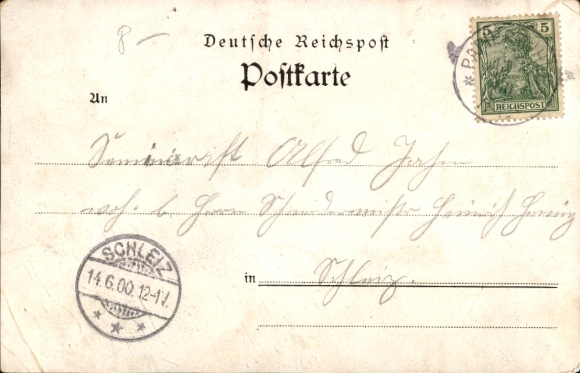 8 —
Deutsche Reichspost
5 5
Postkarte
REICHSPOST
An
Seminarist Alfred
woh. b. Herrn Schneidermeister Heinrich
SCHLEIZ
14.6.00.12-1V.
in Schleiz.